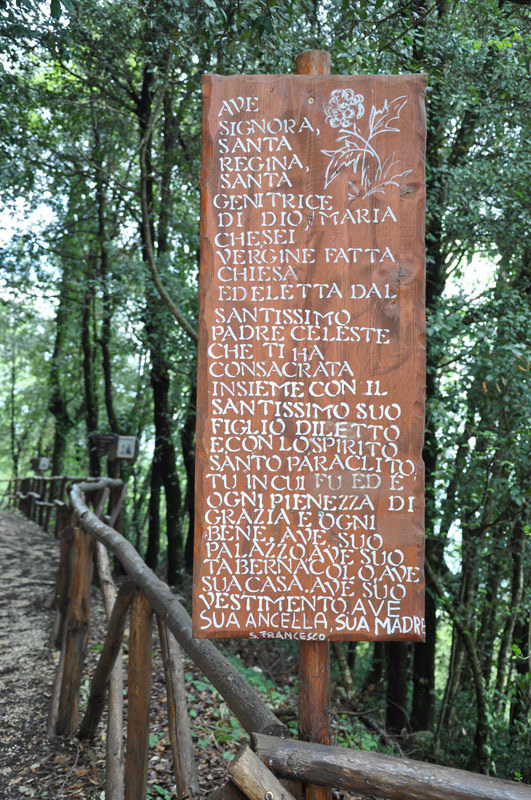 AVE
SIGNORA,
SANTA
REGINA,
SANTA
GENITRICE
DI DIO, MARIA
CHE SEI
VERGINE FATTA
CHIESA
ED ELETTA DAL
SANTISSIMO
PADRE CELESTE
CHE TI HA
CONSACRATA
INSIEME CON IL
SANTISSIMO SUO
FIGLIO DILETTO
E CON LO SPIRITO
SANTO PARACLITO,
TU IN CUI FU ED È
OGNI PIENEZZA DI
GRAZIA E OGNI
BENE, AVE, SUO
PALAZZO, AVE SUO
TABERNACOLO, AVE
SUA CASA, AVE SUO
VESTIMENTO, AVE
SUA ANCELLA, SUA MADRE
S. FRANCESCO